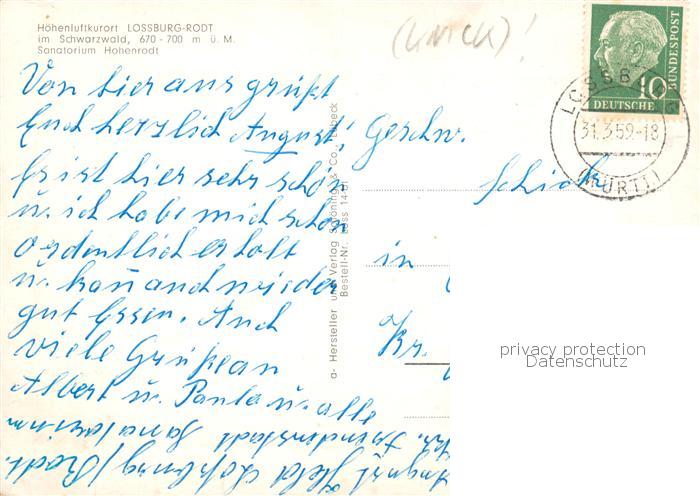 Höhenluftkurort LOSSBURG-RODT
im Schwarzwald, 670-700 m ü. M.
Sanatorium Hohenrodt
(KNICK)!
DEUTSCHE BUNDESPOST
10
LOSSB
31.3.59-18
(WÜRTT)
Von hier aus grüßt
Euch herzlich August!
Es ist hier sehr schön
u. ich habe mich schon
ordentlich erholt
u. kann auch wieder
gut Essen. Auch
viele Grüße an
Albert u. Paula u. alle
August Held Loßburg/Rodt.
Kr. Freudenstadt Sanatorium
Geschw.
in
Kr.
a- Hersteller und Verlag Schöning & Co., Lübeck
Bestell-Nr. Loss 14
privacy protection
Datenschutz